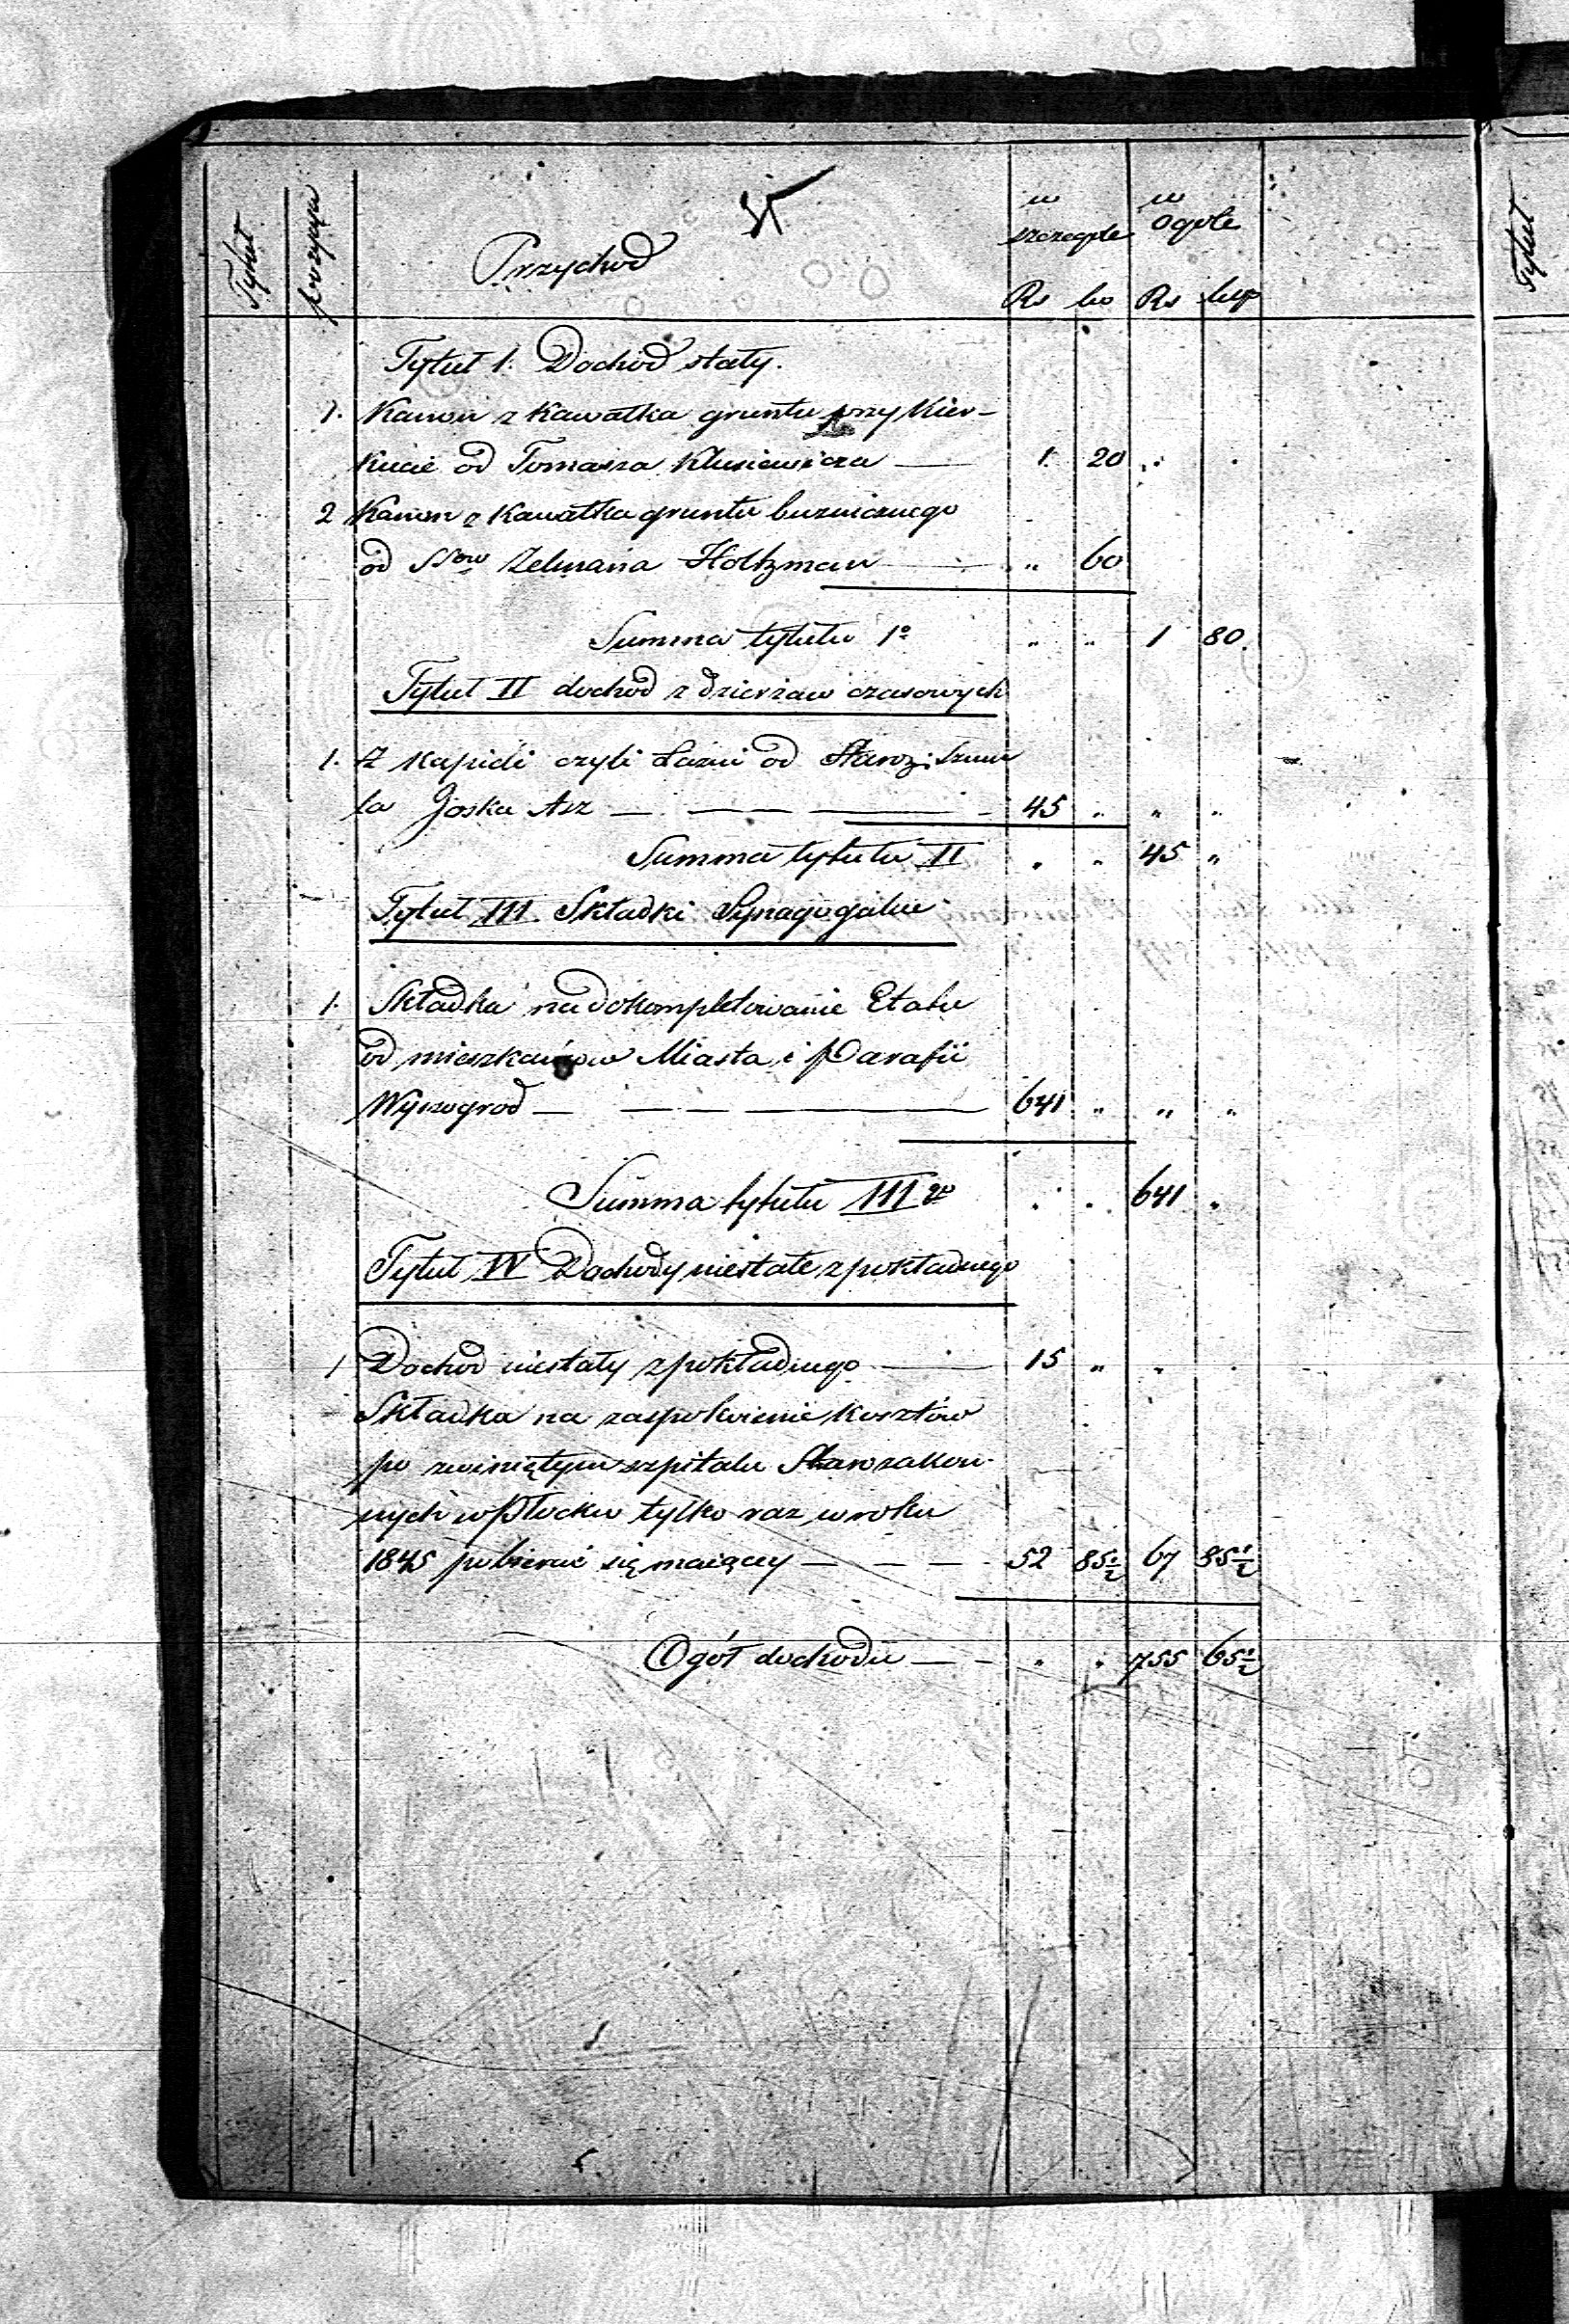 Tytuł
pozycya
Przychod
w szczegole
w Ogole
Rs ko Rs kop
Tytuł 1. Dochód stały.
1. Kanon z Kawałka gruntu przy Kier-
kucie od Tomasza Klusiewicza — 1. 20
2 Kanon z Kawałka gruntu bużnicznego
od SSow Zelmana Holtzman — " 60
Summa tytułu 1º " " 1 80.
Tytuł II dochod z dzierżaw czasowych
1. Z Kąpieli czyli Łazni od Staroz: Szmu
la Joska Asz — — — — 45 " " "
Summa tytułu II " " 45 "
Tytuł III. Składki Synagogalne
1. Składka na dokompletowanie Etatu
od mieszkańcow Miasta i Parafii
Wyszogrod — — — — 641 " " "
Summa tytułu III go . . 641 "
Tytuł IV Dochody niestałe z pokładnego
1 Dochod niestały z pokładnego — 15 " " .
Składka na zaspokoienie kosztów
po zwiniętym szpitalu Starozakon-
nych w Płocku tylko raz w roku
1845 pobierać się maiącey — — — 52 85½ 67 85½
Ogół dochodu — — " " 755 65½
Tytuł